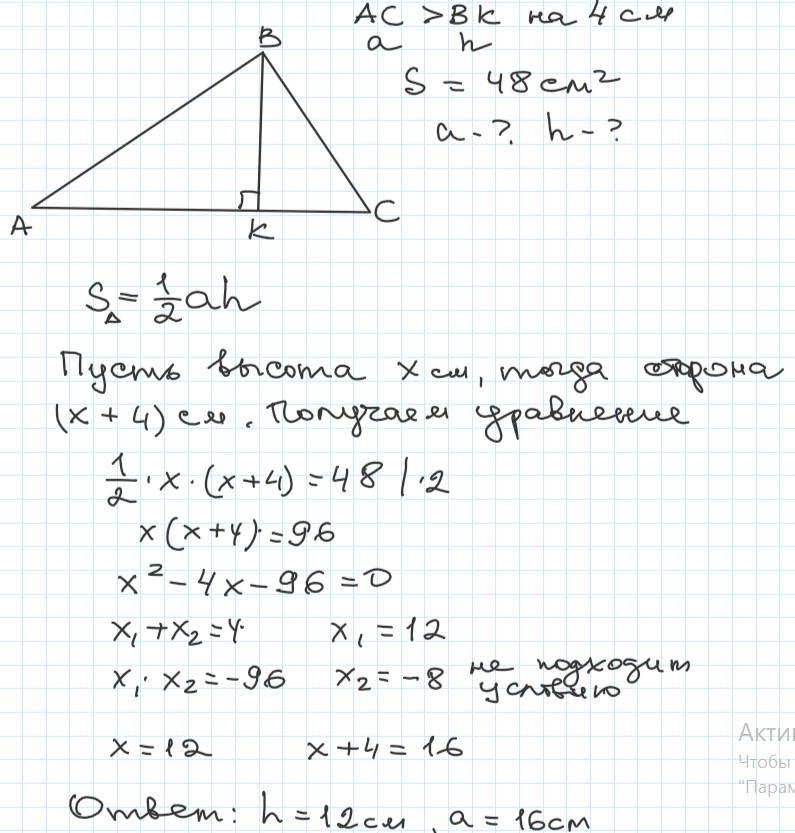 AC > BK на 4 см
a h
S = 48 см²
a - ? h - ?
B
A
K
C
S△ = 1/2 ah
Пусть высота x см, тогда сторона
(x + 4) см. Получаем уравнение
1/2 · x · (x+4) = 48 | · 2
x (x+4) = 96
x² - 4x - 96 = 0
x₁ + x₂ = 4 x₁ = 12
x₁ · x₂ = -96 x₂ = -8 не подходит
условию
x = 12 x + 4 = 16
Ответ: h = 12 см, a = 16 см
Чтобы